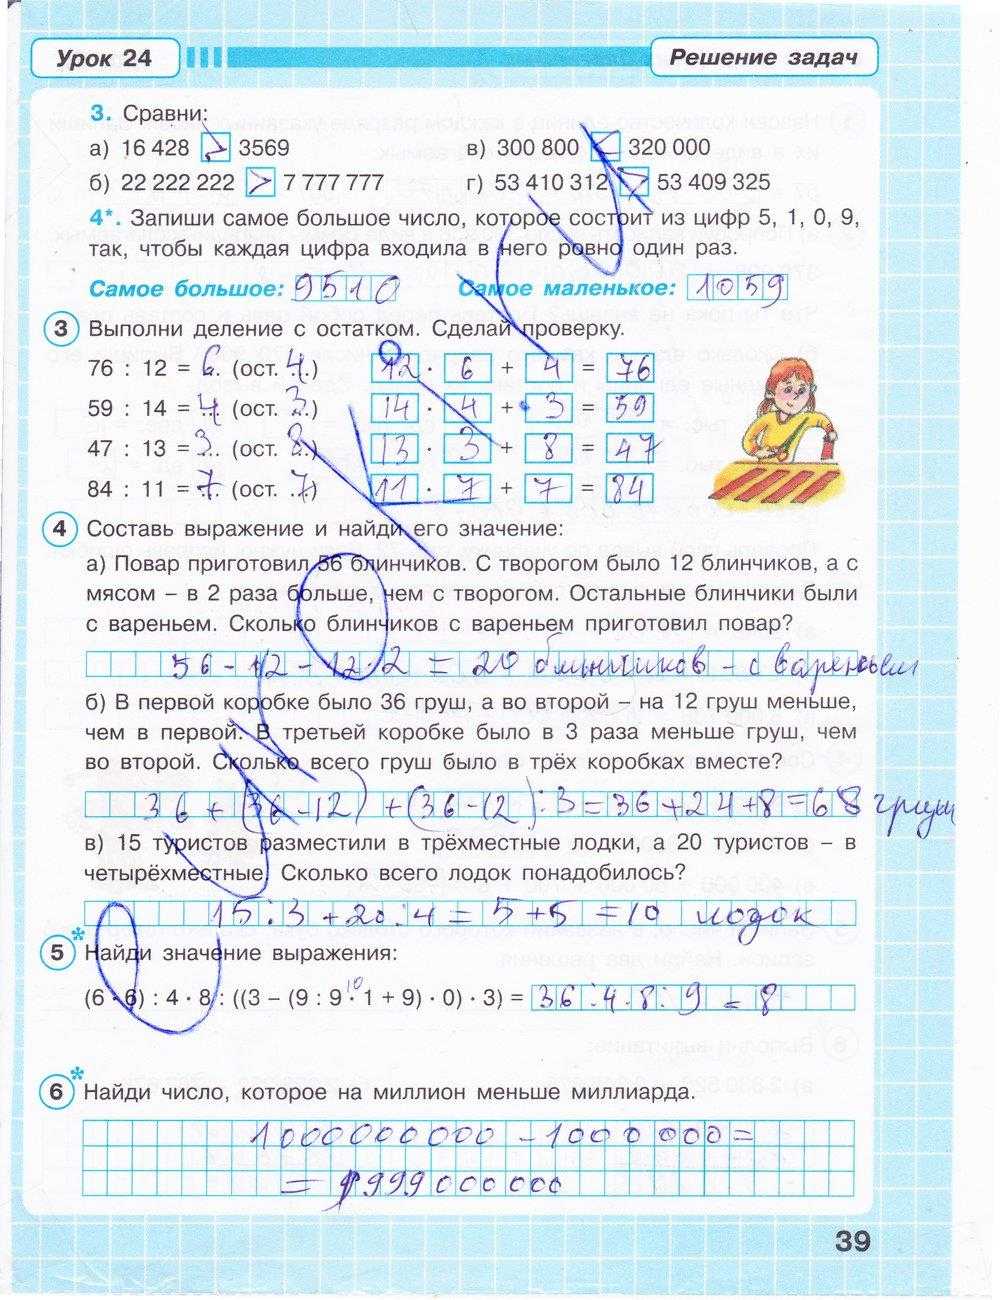 Урок 24
Решение задач
3. Сравни:
а) 16 428 > 3569
в) 300 800 < 320 000
б) 22 222 222 > 7 777 777
г) 53 410 312 > 53 409 325
4*. Запиши самое большое число, которое состоит из цифр 5, 1, 0, 9,
так, чтобы каждая цифра входила в него ровно один раз.
Самое большое: 9510 Самое маленькое: 1059
3 Выполни деление с остатком. Сделай проверку.
76 : 12 = 6 (ост. 4) 12 · 6 + 4 = 76
59 : 14 = 4 (ост. 3) 14 · 4 + 3 = 59
47 : 13 = 3 (ост. 8) 13 · 3 + 8 = 47
84 : 11 = 7 (ост. 7) 11 · 7 + 7 = 84
4 Составь выражение и найди его значение:
а) Повар приготовил 56 блинчиков. С творогом было 12 блинчиков, а с
мясом – в 2 раза больше, чем с творогом. Остальные блинчики были
с вареньем. Сколько блинчиков с вареньем приготовил повар?
56 - 12 - 12·2 = 20 блинчиков - с вареньем
б) В первой коробке было 36 груш, а во второй – на 12 груш меньше,
чем в первой. В третьей коробке было в 3 раза меньше груш, чем
во второй. Сколько всего груш было в трёх коробках вместе?
36 + (36 - 12) + (36 - 12) : 3 = 36 + 24 + 8 = 68 груш
в) 15 туристов разместили в трёхместные лодки, а 20 туристов – в
четырёхместные. Сколько всего лодок понадобилось?
15 : 3 + 20 : 4 = 5 + 5 = 10 лодок
5* Найди значение выражения:
10
(6 · 6) : 4 · 8 : ((3 – (9 : 9 · 1 + 9) · 0) · 3) = 36 : 4 · 8 : 9 = 8
6* Найди число, которое на миллион меньше миллиарда.
1000000000 - 1000000 =
= 999000000
39